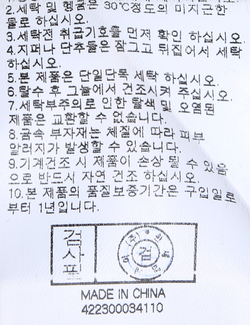 2.세탁 및 헹굼은 30℃정도의 미지근한
물로 하십시오.
3.세탁전 취급기호를 먼저 확인 하십시오
4.지퍼나 단추들은 잘그고 뒤집어서 세탁
하십시오.
5.본 제품은 단일단독 세탁 하십시오.
6.탈수 후 그늘에서 건조시켜 주십시오.
7.세탁부주의로 인한 탈색 및 오염된
제품은 교환할 수 없습니다.
8.금속 부자재는 체질에 따라 피부
알러지가 발생할 수 있습니다.
9.기계건조 시 제품이 손상 될 수 있음
으로 반드시 자연 건조 하십시오.
10.본 제품의 품질보증기간은 구입일로
부터 1년입니다.
검사필
검
MADE IN CHINA
422300034110